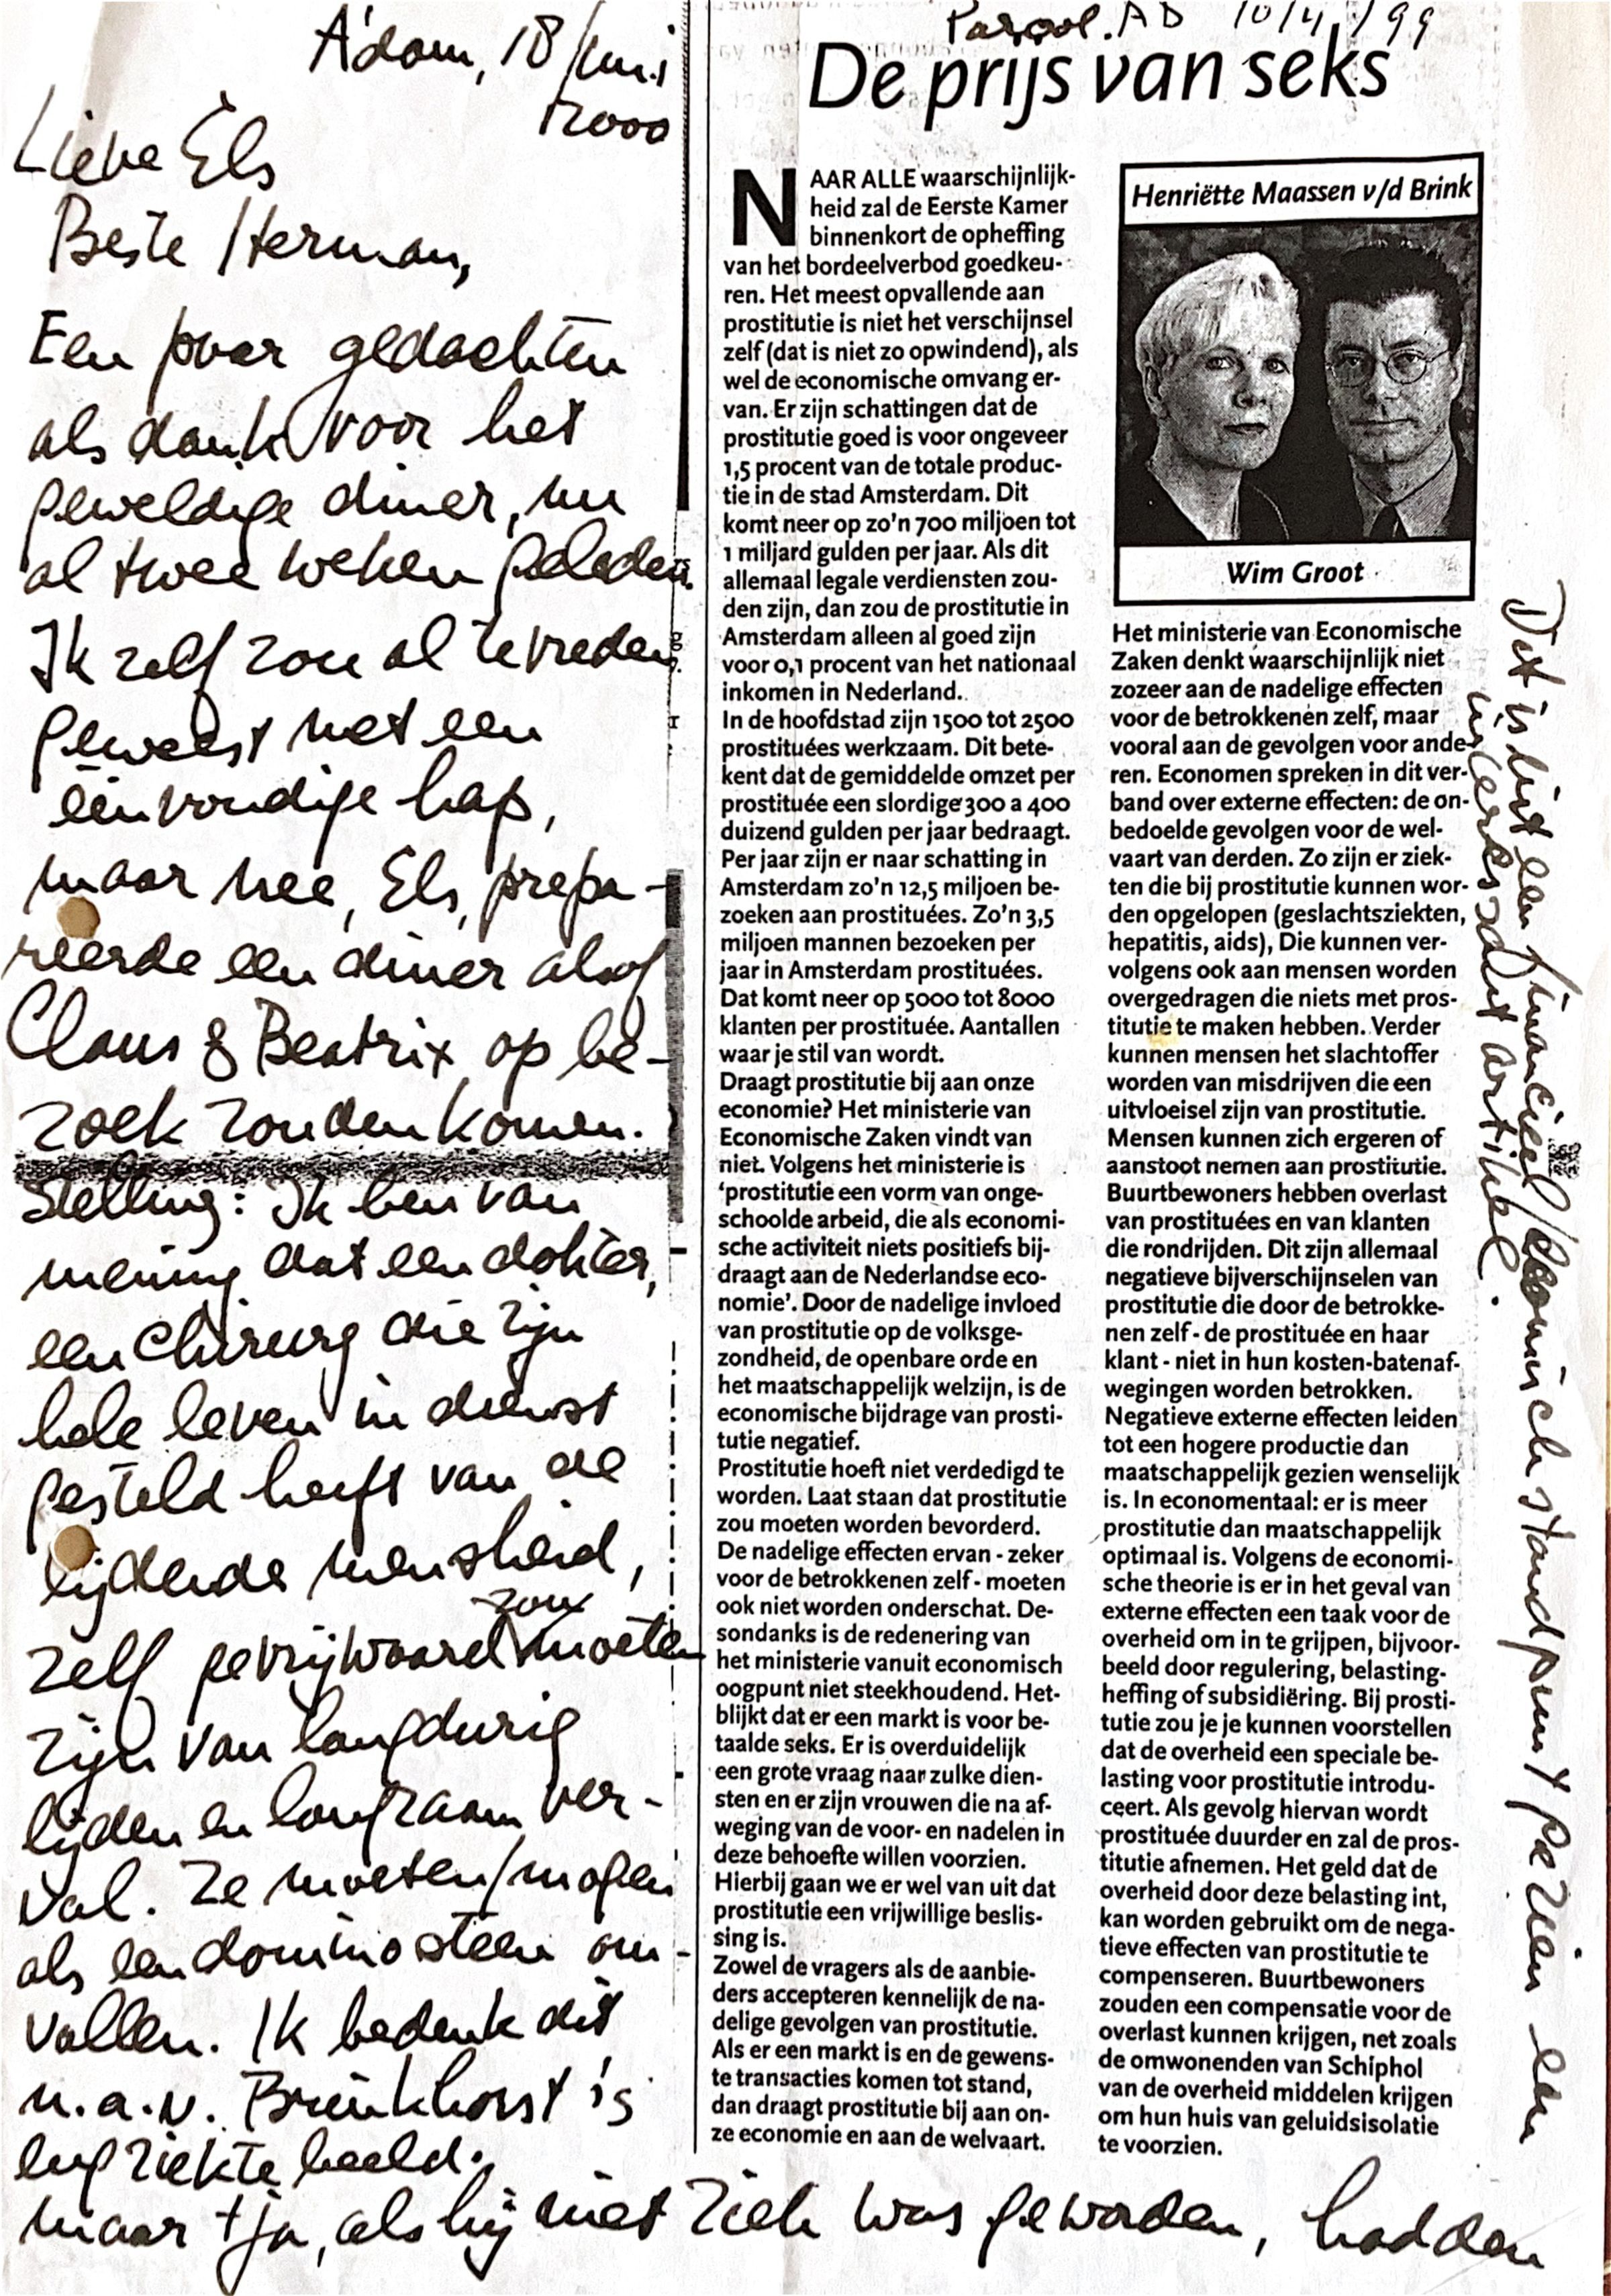 A'dam, 18 juni
2000
Lieve Els
Beste Herman,
Een paar gedachten
als dank voor het
geweldige diner, nu
al twee weken geleden.
Ik zelf zou al tevreden
geweest met een
eenvoudige hap,
maar nee, Els, prepa-
reerde een diner alsof
Claus & Beatrix op be-
zoek zouden komen.
Stelling: Ik ben van
mening dat een dokter,
een chirurg die zijn
hele leven in dienst
gesteld heeft van de
lijdende mensheid,
zou
zelf gevrijwaard moeten
zijn van langdurig
lijden en langzaam ver-
val. Ze moeten/mogen
als een dominosteen om-
vallen. Ik bedenk dit
n.a.v. Brinkhorst's
ziektebeeld.
maar tja, als hij niet ziek was geworden, hadden
Parool. AD 10/4/99
De prijs van seks
NAAR ALLE waarschijnlijk-
heid zal de Eerste Kamer
binnenkort de opheffing
van het bordeelverbod goedkeu-
ren. Het meest opvallende aan
prostitutie is niet het verschijnsel
zelf (dat is niet zo opwindend), als
wel de economische omvang er-
van. Er zijn schattingen dat de
prostitutie goed is voor ongeveer
1,5 procent van de totale produc-
tie in de stad Amsterdam. Dit
komt neer op zo'n 700 miljoen tot
1 miljard gulden per jaar. Als dit
allemaal legale verdiensten zou-
den zijn, dan zou de prostitutie in
Amsterdam alleen al goed zijn
voor 0,1 procent van het nationaal
inkomen in Nederland.
In de hoofdstad zijn 1500 tot 2500
prostituées werkzaam. Dit bete-
kent dat de gemiddelde omzet per
prostituée een slordige 300 a 400
duizend gulden per jaar bedraagt.
Per jaar zijn er naar schatting in
Amsterdam zo'n 12,5 miljoen be-
zoeken aan prostituées. Zo'n 3,5
miljoen mannen bezoeken per
jaar in Amsterdam prostituées.
Dat komt neer op 5000 tot 8000
klanten per prostituée. Aantallen
waar je stil van wordt.
Draagt prostitutie bij aan onze
economie? Het ministerie van
Economische Zaken vindt van
niet. Volgens het ministerie is
'prostitutie een vorm van onge-
schoolde arbeid, die als economi-
sche activiteit niets positiefs bij-
draagt aan de Nederlandse eco-
nomie'. Door de nadelige invloed
van prostitutie op de volksge-
zondheid, de openbare orde en
het maatschappelijk welzijn, is de
economische bijdrage van prosti-
tutie negatief.
Prostitutie hoeft niet verdedigd te
worden. Laat staan dat prostitutie
zou moeten worden bevorderd.
De nadelige effecten ervan - zeker
voor de betrokkenen zelf - moeten
ook niet worden onderschat. De-
sondanks is de redenering van
het ministerie vanuit economisch
oogpunt niet steekhoudend. Het-
blijkt dat er een markt is voor be-
taalde seks. Er is overduidelijk
een grote vraag naar zulke dien-
sten en er zijn vrouwen die na af-
weging van de voor- en nadelen in
deze behoefte willen voorzien.
Hierbij gaan we er wel van uit dat
prostitutie een vrijwillige beslis-
sing is.
Zowel de vragers als de aanbie-
ders accepteren kennelijk de na-
delige gevolgen van prostitutie.
Als er een markt is en de gewens-
te transacties komen tot stand,
dan draagt prostitutie bij aan on-
ze economie en aan de welvaart.
Henriëtte Maassen v/d Brink
Wim Groot
Het ministerie van Economische
Zaken denkt waarschijnlijk niet
zozeer aan de nadelige effecten
voor de betrokkenen zelf, maar
vooral aan de gevolgen voor ande-
ren. Economen spreken in dit ver-
band over externe effecten: de on-
bedoelde gevolgen voor de wel-
vaart van derden. Zo zijn er ziek-
ten die bij prostitutie kunnen wor-
den opgelopen (geslachtsziekten,
hepatitis, aids), Die kunnen ver-
volgens ook aan mensen worden
overgedragen die niets met pros-
titutie te maken hebben. Verder
kunnen mensen het slachtoffer
worden van misdrijven die een
uitvloeisel zijn van prostitutie.
Mensen kunnen zich ergeren of
aanstoot nemen aan prostitutie.
Buurtbewoners hebben overlast
van prostituées en van klanten
die rondrijden. Dit zijn allemaal
negatieve bijverschijnselen van
prostitutie die door de betrokke-
nen zelf - de prostituée en haar
klant - niet in hun kosten-batenaf-
wegingen worden betrokken.
Negatieve externe effecten leiden
tot een hogere productie dan
maatschappelijk gezien wenselijk
is. In economentaal: er is meer
prostitutie dan maatschappelijk
optimaal is. Volgens de economi-
sche theorie is er in het geval van
externe effecten een taak voor de
overheid om in te grijpen, bijvoor-
beeld door regulering, belasting-
heffing of subsidiëring. Bij prosti-
tutie zou je je kunnen voorstellen
dat de overheid een speciale be-
lasting voor prostitutie introdu-
ceert. Als gevolg hiervan wordt
prostituée duurder en zal de pros-
titutie afnemen. Het geld dat de
overheid door deze belasting int,
kan worden gebruikt om de nega-
tieve effecten van prostitutie te
compenseren. Buurtbewoners
zouden een compensatie voor de
overlast kunnen krijgen, net zoals
de omwonenden van Schiphol
van de overheid middelen krijgen
om hun huis van geluidsisolatie
te voorzien.
Dit is uit een financieel/economisch standpunt gezien een
interessant artikel.